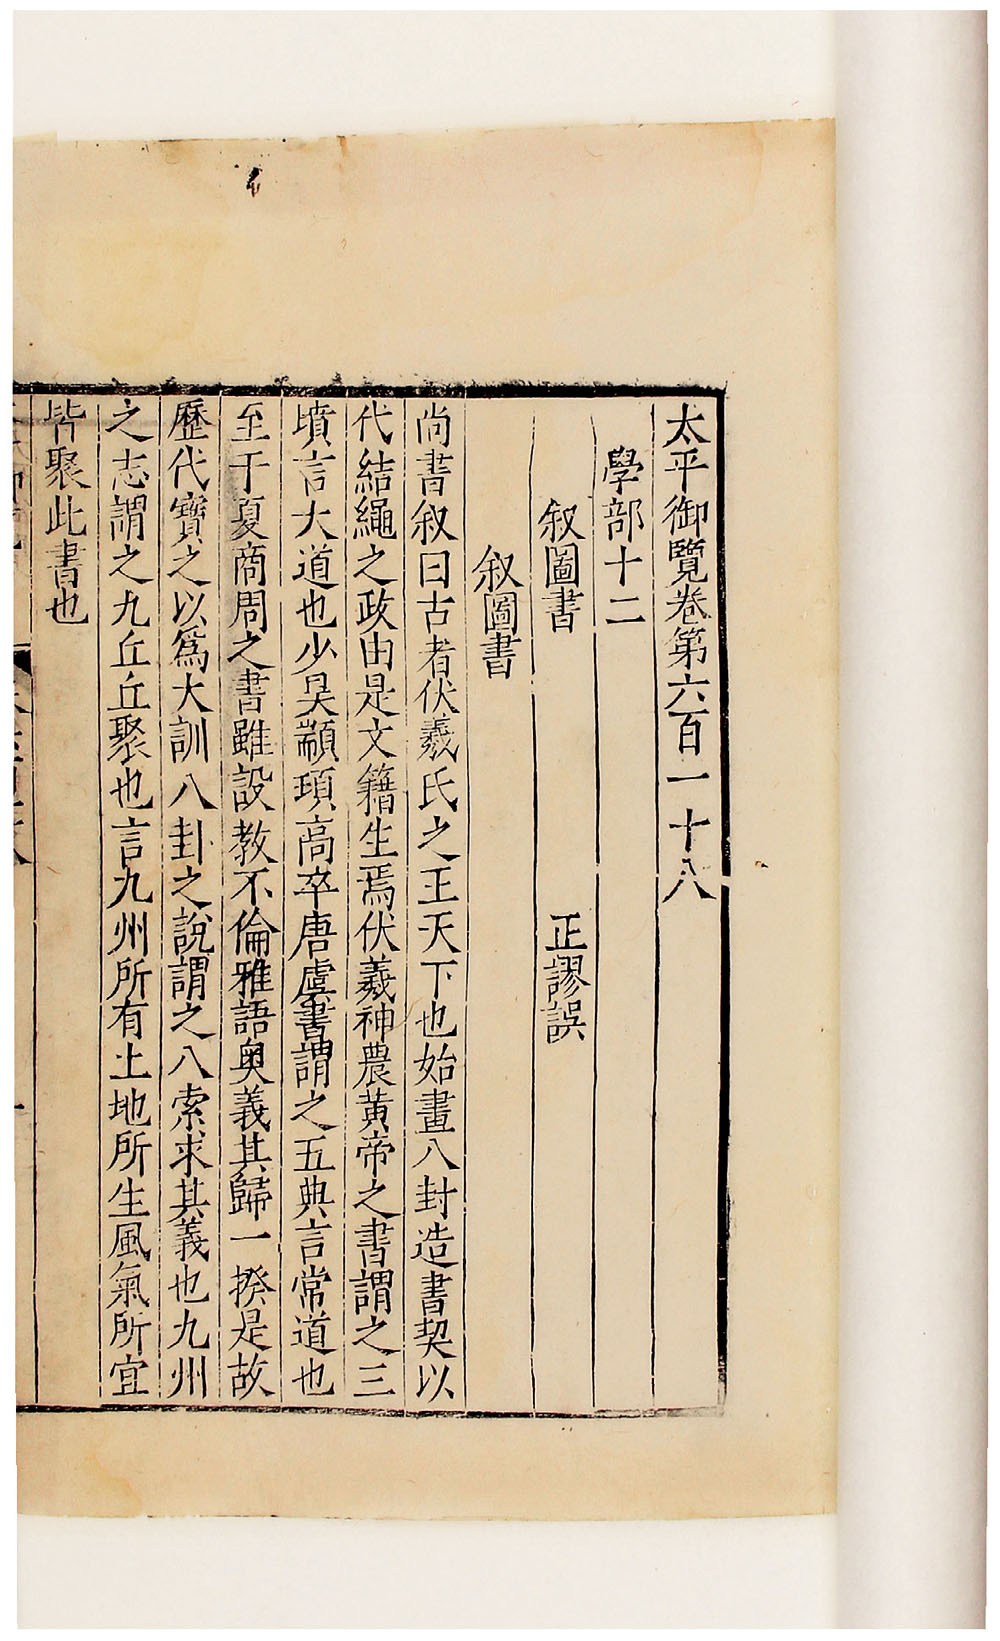 太平御覽卷第六百一十八
學部十二
叙圖書 正謬誤
叙圖書
尚書叙曰古者伏羲氏之王天下也始畫八封造書契以
代結繩之政由是文籍生焉伏羲神農黃帝之書謂之三
墳言大道也少昊顓頊高卒唐虞書謂之五典言常道也
至于夏商周之書雖設教不倫雅語奧義其歸一揆是故
歷代寶之以爲大訓八卦之說謂之八索求其義也九州
之志謂之九丘丘聚也言九州所有土地所生風氣所宜
皆聚此書也